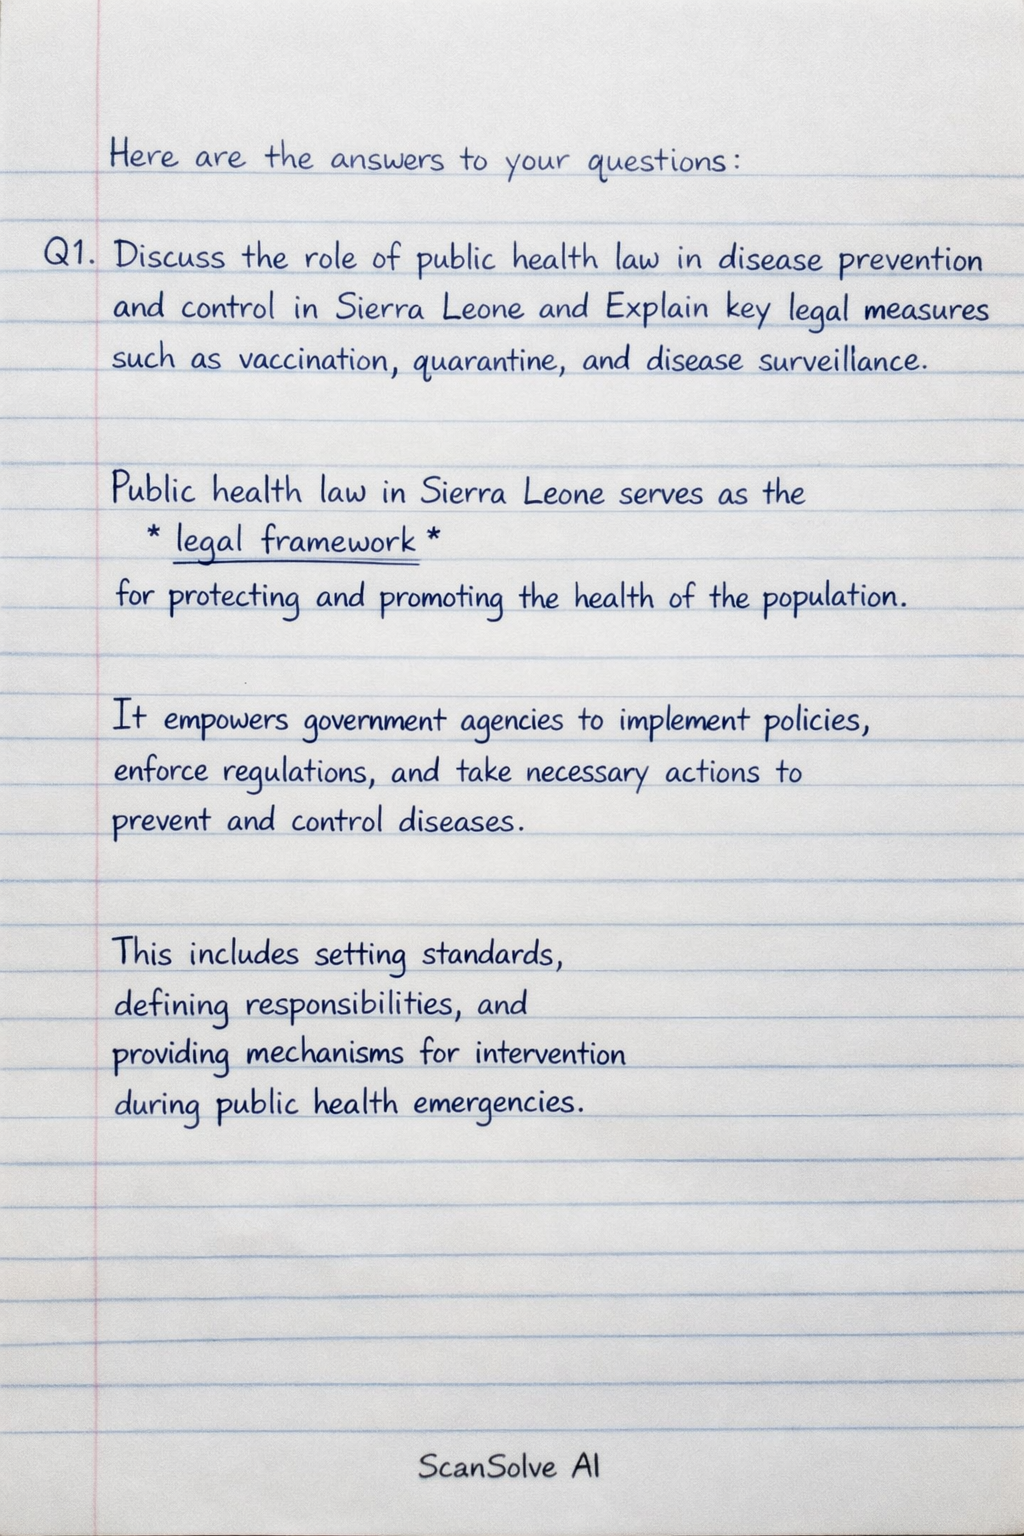 Here are the answers to your questions:
Q1. Discuss the role of public health law in disease prevention
and control in Sierra Leone and Explain key legal measures
such as vaccination, quarantine, and disease surveillance.
Public health law in Sierra Leone serves as the
* legal framework *
for protecting and promoting the health of the population.
It empowers government agencies to implement policies,
enforce regulations, and take necessary actions to
prevent and control diseases.
This includes setting standards,
defining responsibilities, and
providing mechanisms for intervention
during public health emergencies.
ScanSolve AI